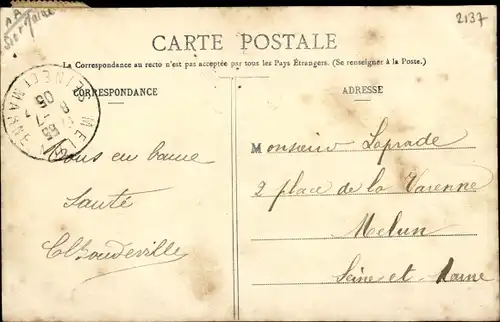 2137
CARTE POSTALE
La Correspondance au recto n'est pas acceptée par tous les Pays Étrangers. (Se renseigner à la Poste.)
CORRESPONDANCE
ADRESSE
Monsieur Laprade
2 place de la Varenne
Melun
Seine et Marne
Tous en bonne
Santé